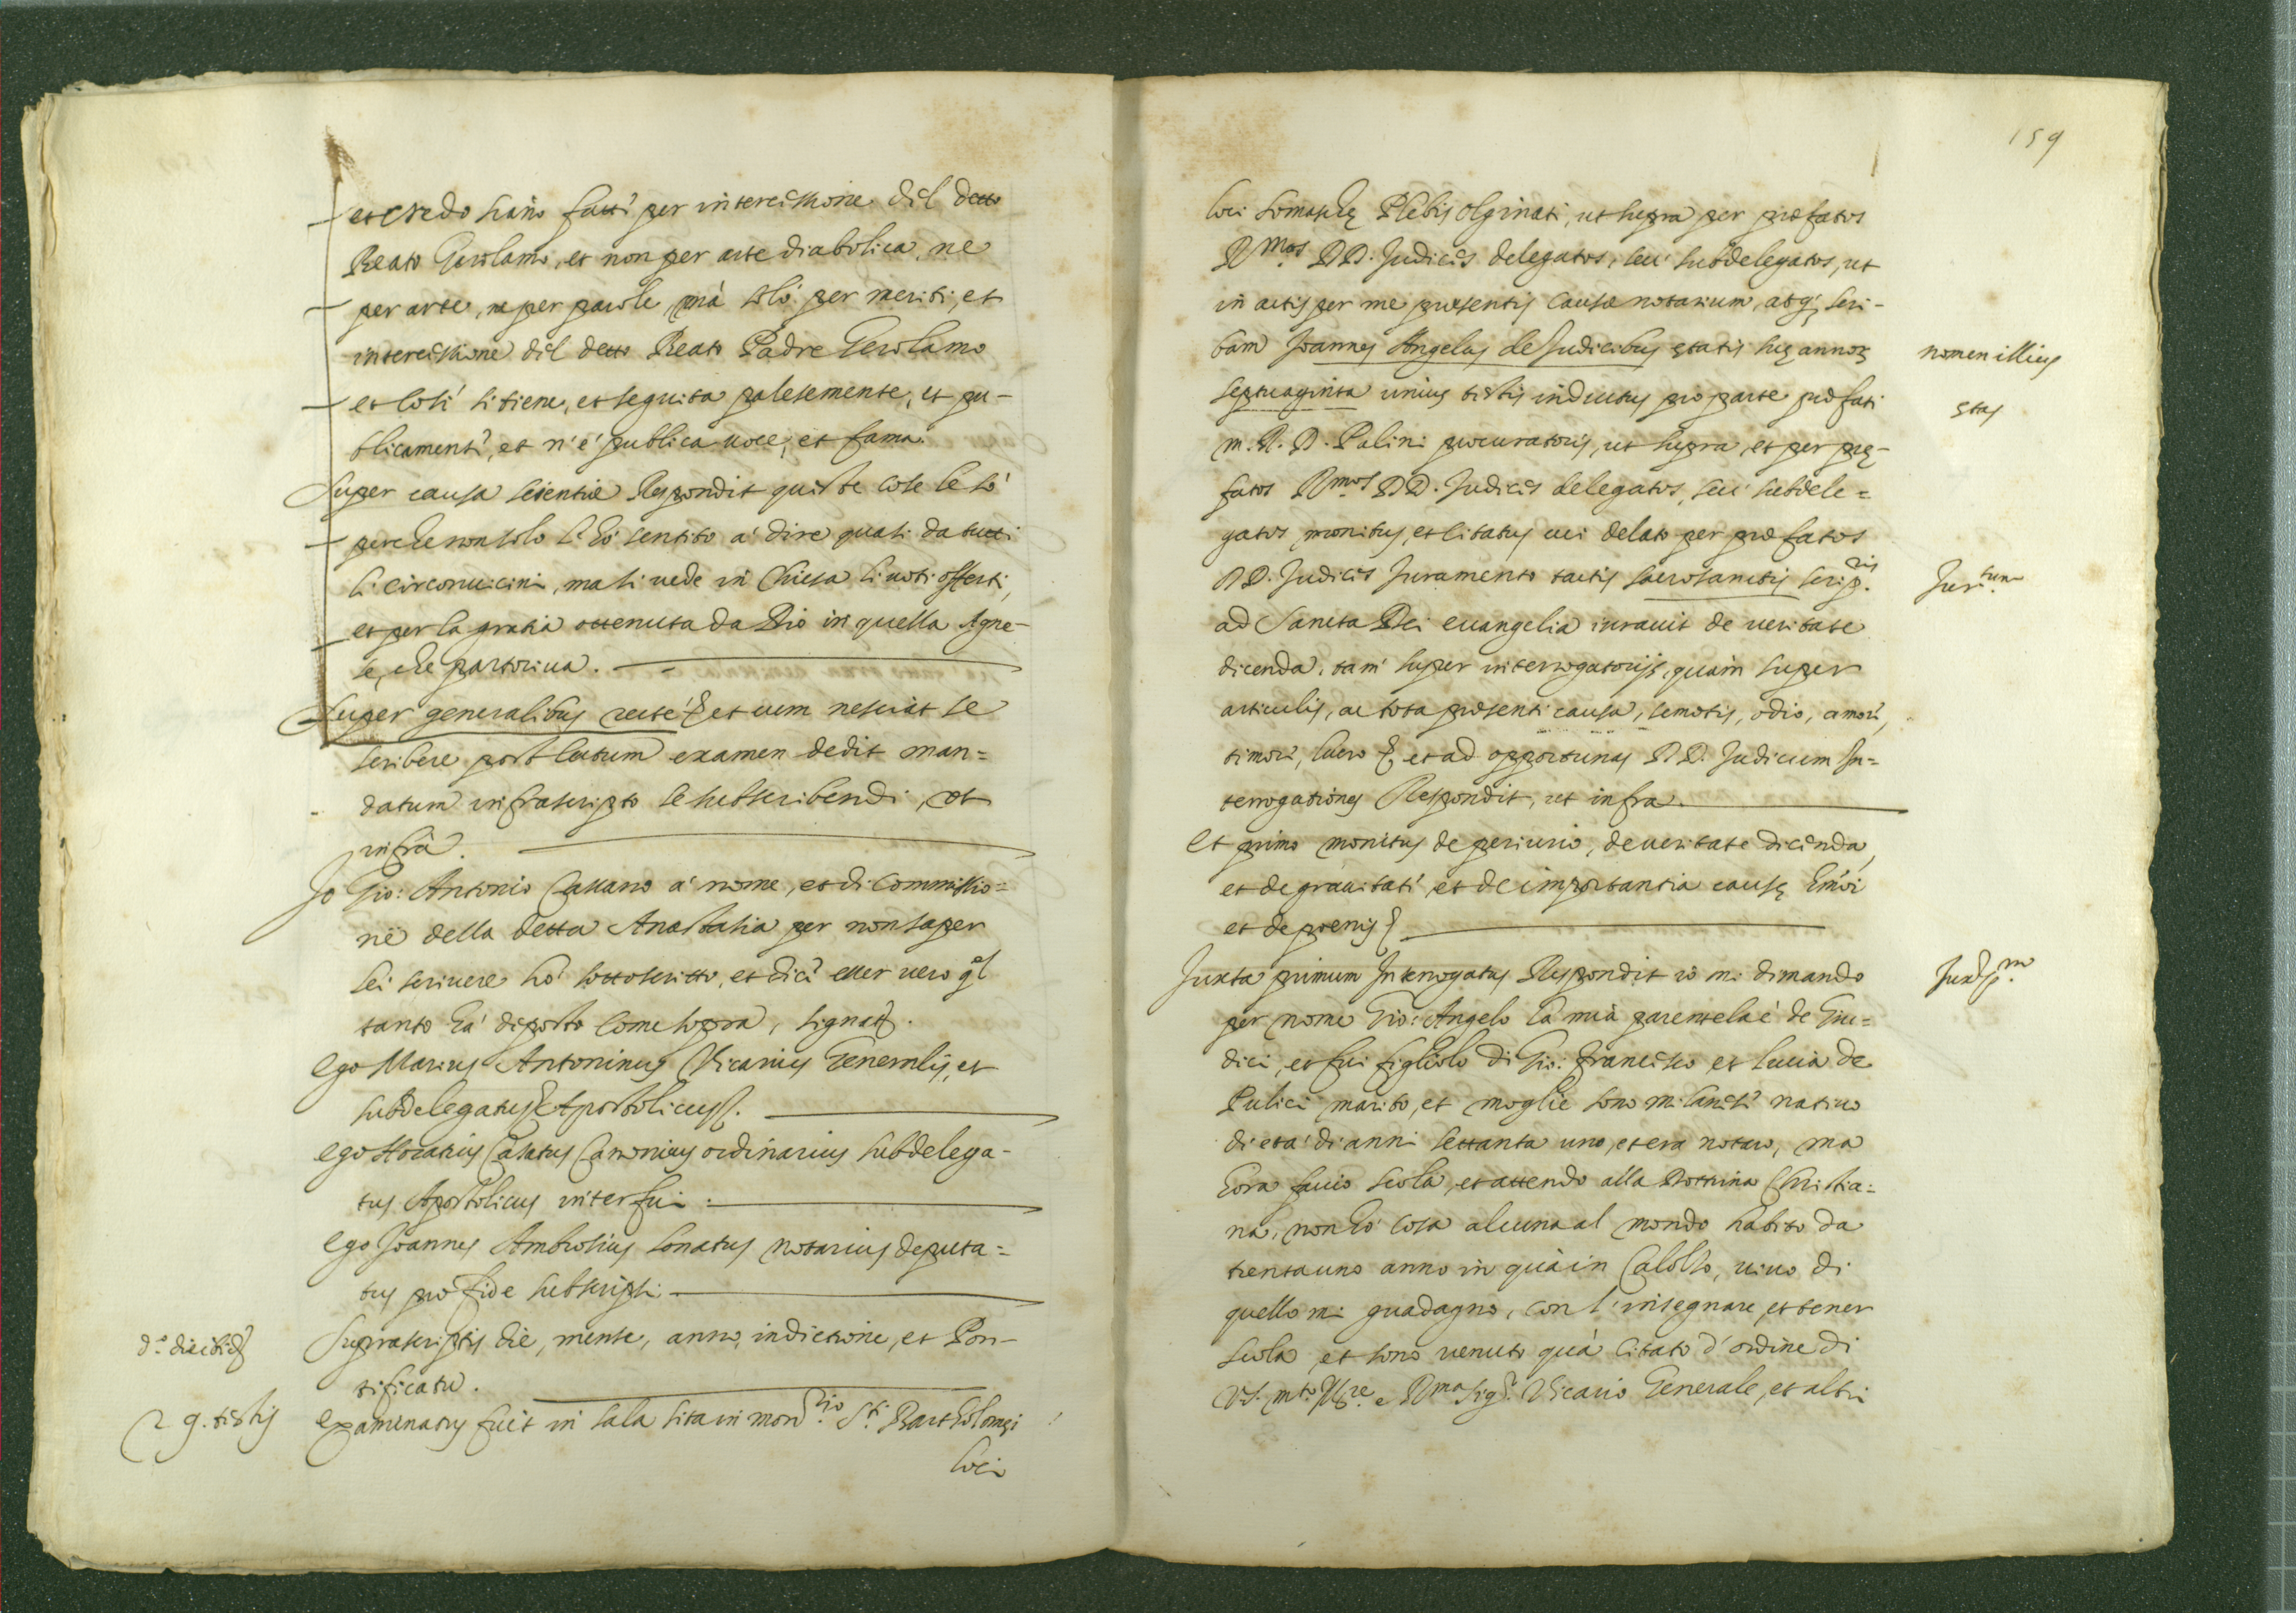 et credo hano fatti per intercessione del detto
Beato Gerolamo, et non per arte diabolica, ne
per arte, ne per parole, mà solo per meriti, et
intercessione del detto Beato Padre Gerolamo
et così si tiene, et seguita palesemente, et pu-
blicament', et n'é publica uoce, et fama.
Super causa scientiæ Respondit queste cose le sò
perche non solo l'hò sentito à dire quasi da tutti
li circonuicini, ma si uede in Chiesa li uoti offerti,
et per la gratia ottenuta da Dio in quella Agne-
se, che partoriua.
Super generalibus recte et cum nesciat se
scribere post lectum examen dedit man=
datum infrascripto se subscribendi, ut
infrà.
Io Gio: Antonio Cassano à nome, et di commissio=
ne della detta Anastasia per non saper
lei scriuere hò sottoscritto, et dice esser uero ql
tanto hà deposto come sopra, signat.
Ego Marius Antoninus Vicarius Generalis, et
subdelegatus Apostolicus.
Ego Horatius Casatus Canonicus ordinarius subdelega-
tus Apostolicus interfui.
Ego Joannes Ambrosius Lonatus notarius deputa=
tus pro fide subscripsi.
d.a die
Suprascriptis die, mense, anno, indictione, et Pon-
tificatu.
9. testis
Examinatus fuit in sala sita in mon.rio S.ti Bartholomęi
loci
159
loci Somaschę Plebis Olginati, ut supra per præfatos
R.mos DD. Judices delegatos, seu subdelegatos, ut
in actis per me præsentis causæ notarium, atq; scri-
bam Joannes Angelus de Judicibus ętatis suę annor
nomen illius
septuaginta unius testis inductus pro parte præfati
ętas
m. R. D. Palini procuratoris, ut supra, et per pre-
fatos R.mos DD. Judices delegatos, seu subdele=
gatos monitus, et citatus cui delato per præfatos
DD. Judices Juramento tactis sacrosanctis scrip.ris
Jur.tum
ad Sancta Dei euangelia iurauit de ueritate
dicenda, tam super interrogatorijs, quam super
articulis, ac tota præsenti causa, semotis, odio, amore,
timore, lucro et ad opportunas DD. Judicum In=
terrogationes Respondit, ut infra.
Et primo monitus de periurio, de ueritate dicenda,
et de grauitate et de importantia causę
et de poenis
Juxta primum Interrogatus Respondit io mi dimando
Juxta p.m
per nome Gio: Angelo la mia parentela è de Giu=
dici, et fui figliolo di Gio: Francisco et Lucia de
Pulici marito, et moglie sono milanese natiuo
di età di anni settanta uno, et era notaro, ma
hora faccio scola, et attendo alla Dottrina Christia=
na, non hò cosa alcuna al mondo habito da
trenta uno anno in quà in Calolzo, uiuo di
quello mi guadagno, con l'insegnare, et tener
scola et sono uenuto quà citato d'ordine di
V.S. m.to Ill.re e R.ma Sig.r Vicario Generale, et altri